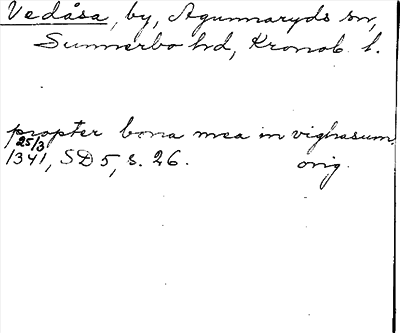 Vedåsa, by, Agunnaryds sn,
Sunnerbo hd, Kronob. l.
propter bona mea in vighasum.
25/3
1341, SD 5, s. 26. orig.